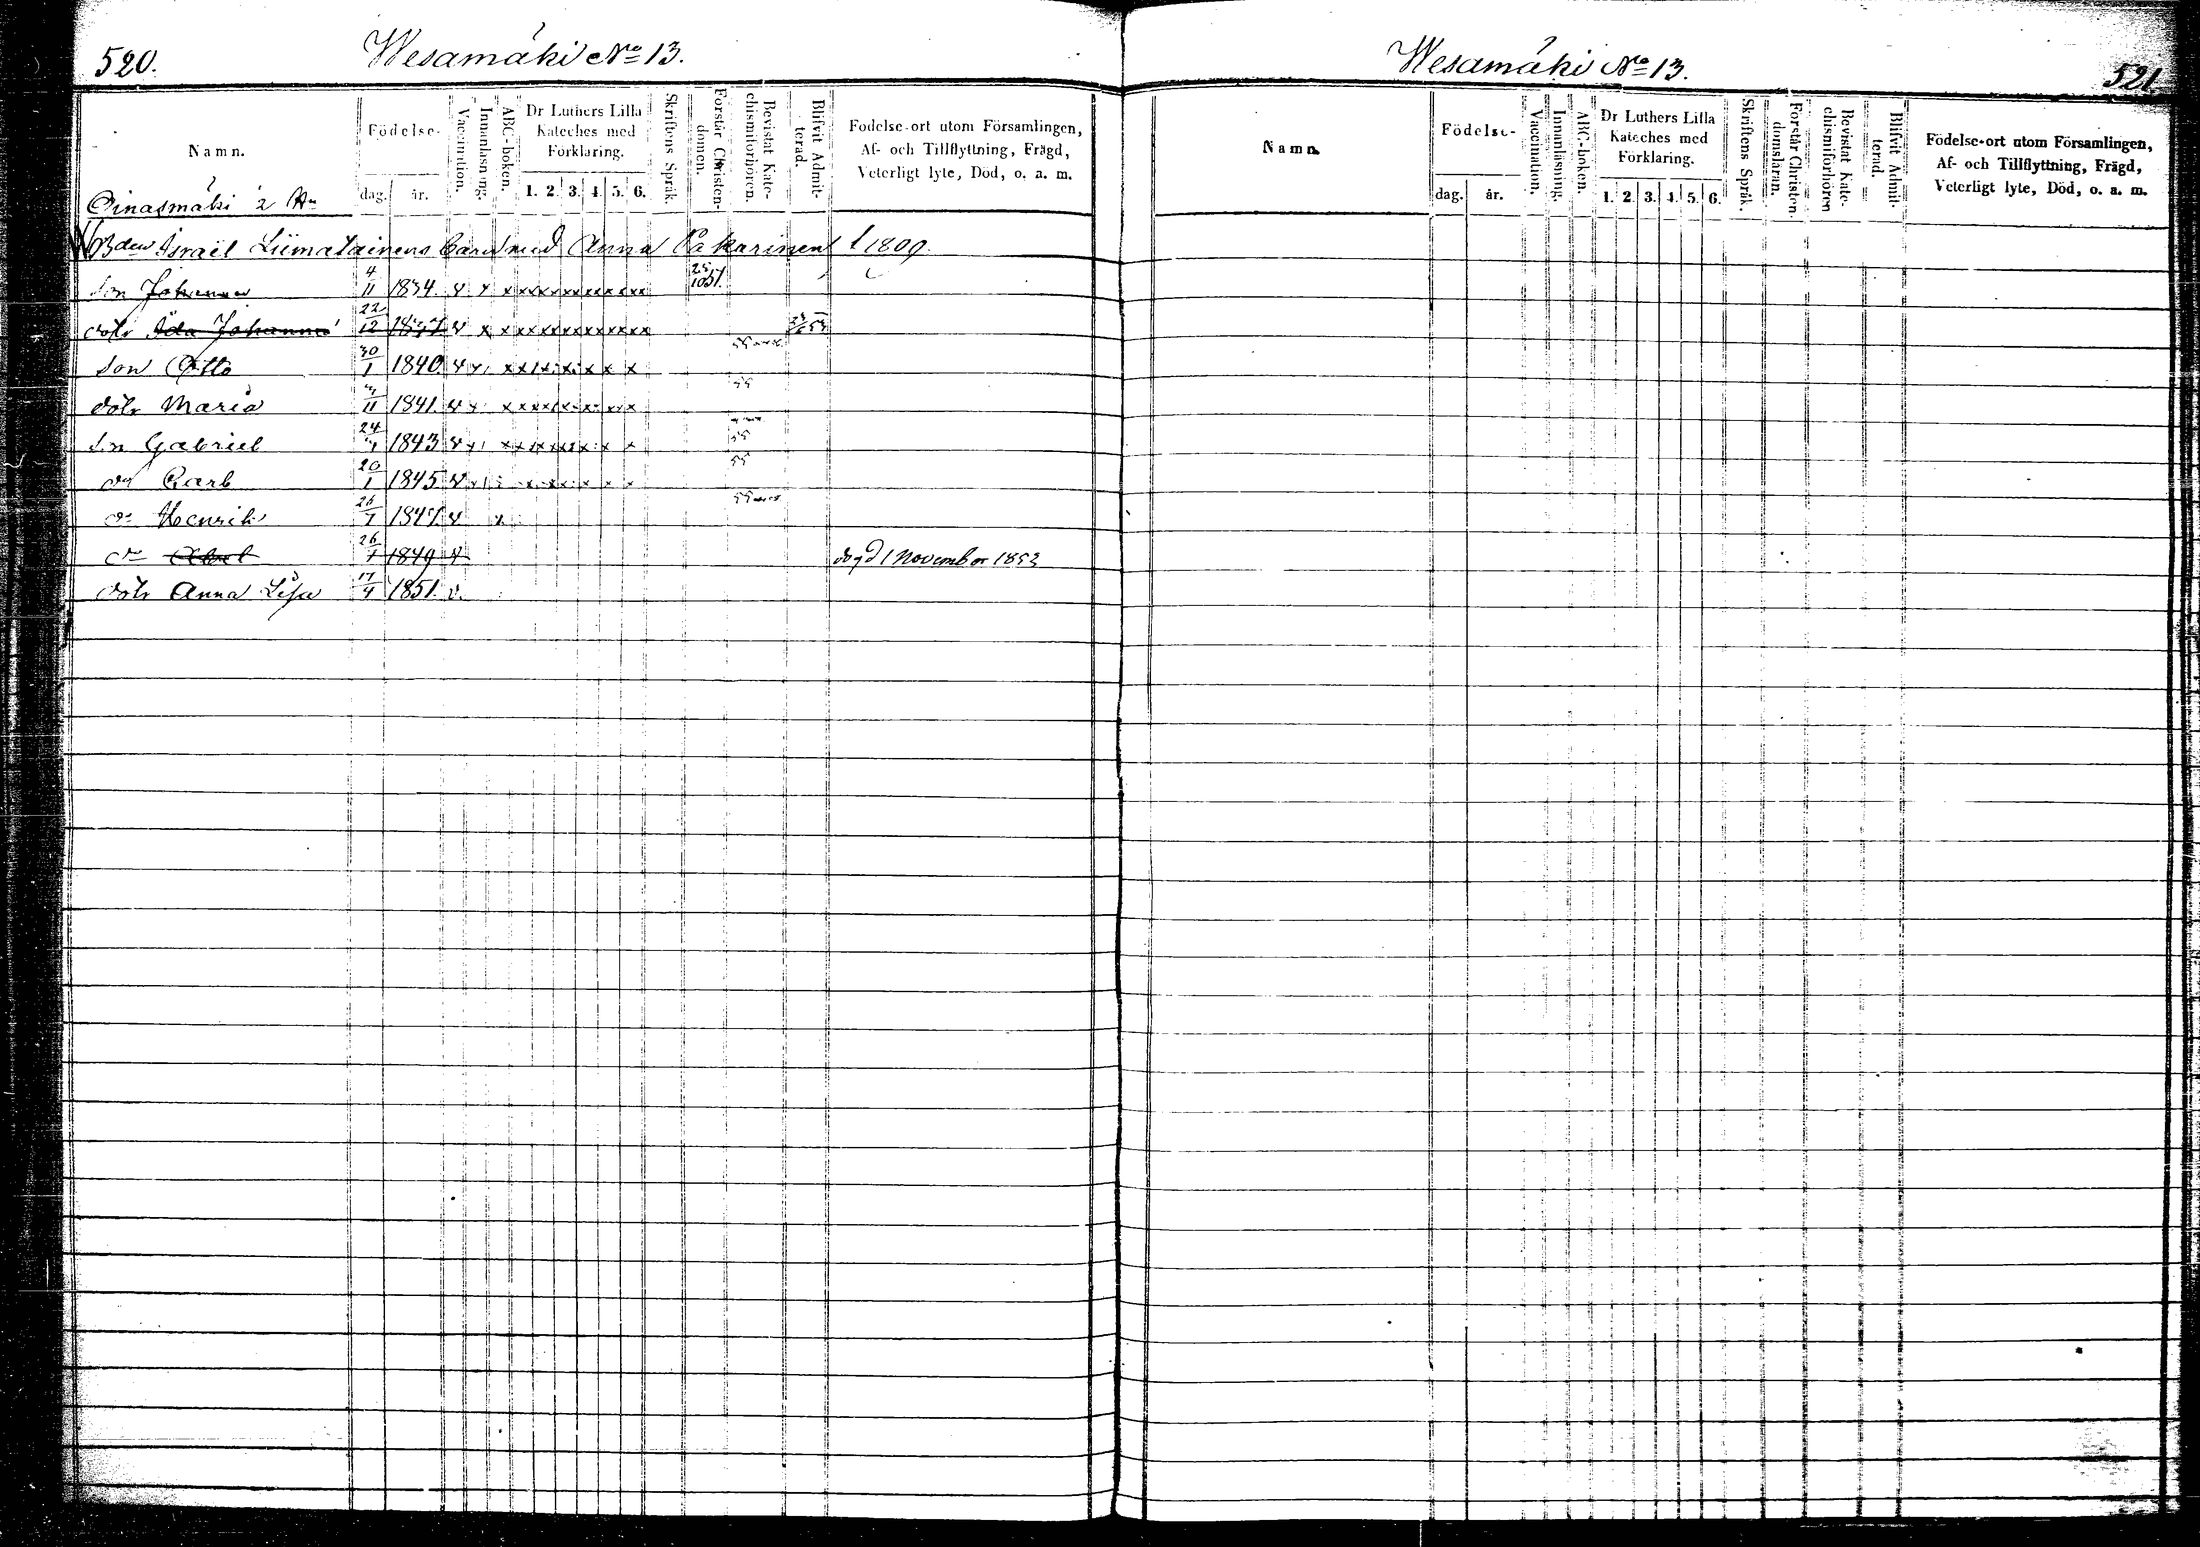 520.
Wesamäki No 13.
Namn.
Födelse-
dag.
år.
Vaccination.
Innanläsning.
ABC-boken.
Dr Luthers Lilla
Kateches med
Förklaring.
1. 2. 3. 4. 5. 6.
Skriftens Språk.
Förstår Christen-
domen.
Bevistat Kate-
chismiförhören.
Blifvit Admit-
terad.
Födelse-ort utom Församlingen,
Af- och Tillflyttning, Frägd,
Veterligt lyte, Död, o. a. m.
Oinasmäki 2
Israël Liimatainens barn med Anna Pakarinen f 1809.
Son Johannes 4/11 1834. v x x x x x x x x x x x x x
dotr Ida Johanna 22/12 v x x x x x x x x x x x x
son Otto 30/1 1840 v
dotr Maria 1841. v
Sn Gabriel 24 1843 v
do Carl 20/1 1845 v
do Henrik 1847 v x
do 26/1 1849 v död 1 November 1853
dotr Anna Lisa 17/4 1851. v.
Wesamäki No 13.
521
Namn.
Födelse-
dag.
år.
Vaccination.
Innanläsning.
ABC-boken.
Dr Luthers Lilla
Kateches med
Förklaring.
1. 2. 3. 4. 5. 6.
Skriftens Språk.
Förstår Christen-
domsläran.
Bevistat Kate-
chismiförhören
Blifvit Admit-
terad.
Födelse-ort utom Församlingen,
Af- och Tillflyttning, Frägd,
Veterligt lyte, Död, o. a. m.